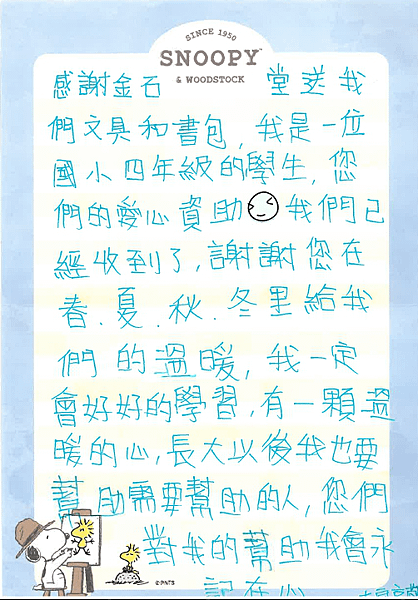 SINCE 1950
SNOOPY™
& WOODSTOCK
感謝金石 堂送我
們文具和書包，我是一位
國小四年級的學生，您
們的愛心資助 我們已
經收到了，謝謝您在
春．夏．秋．冬里給我
們的溫暖，我一定
會好好的學習，有一顆溫
暖的心，長大以後我也要
幫助需要幫助的人，您們
對我的幫助我會永
記在心
©PNTS